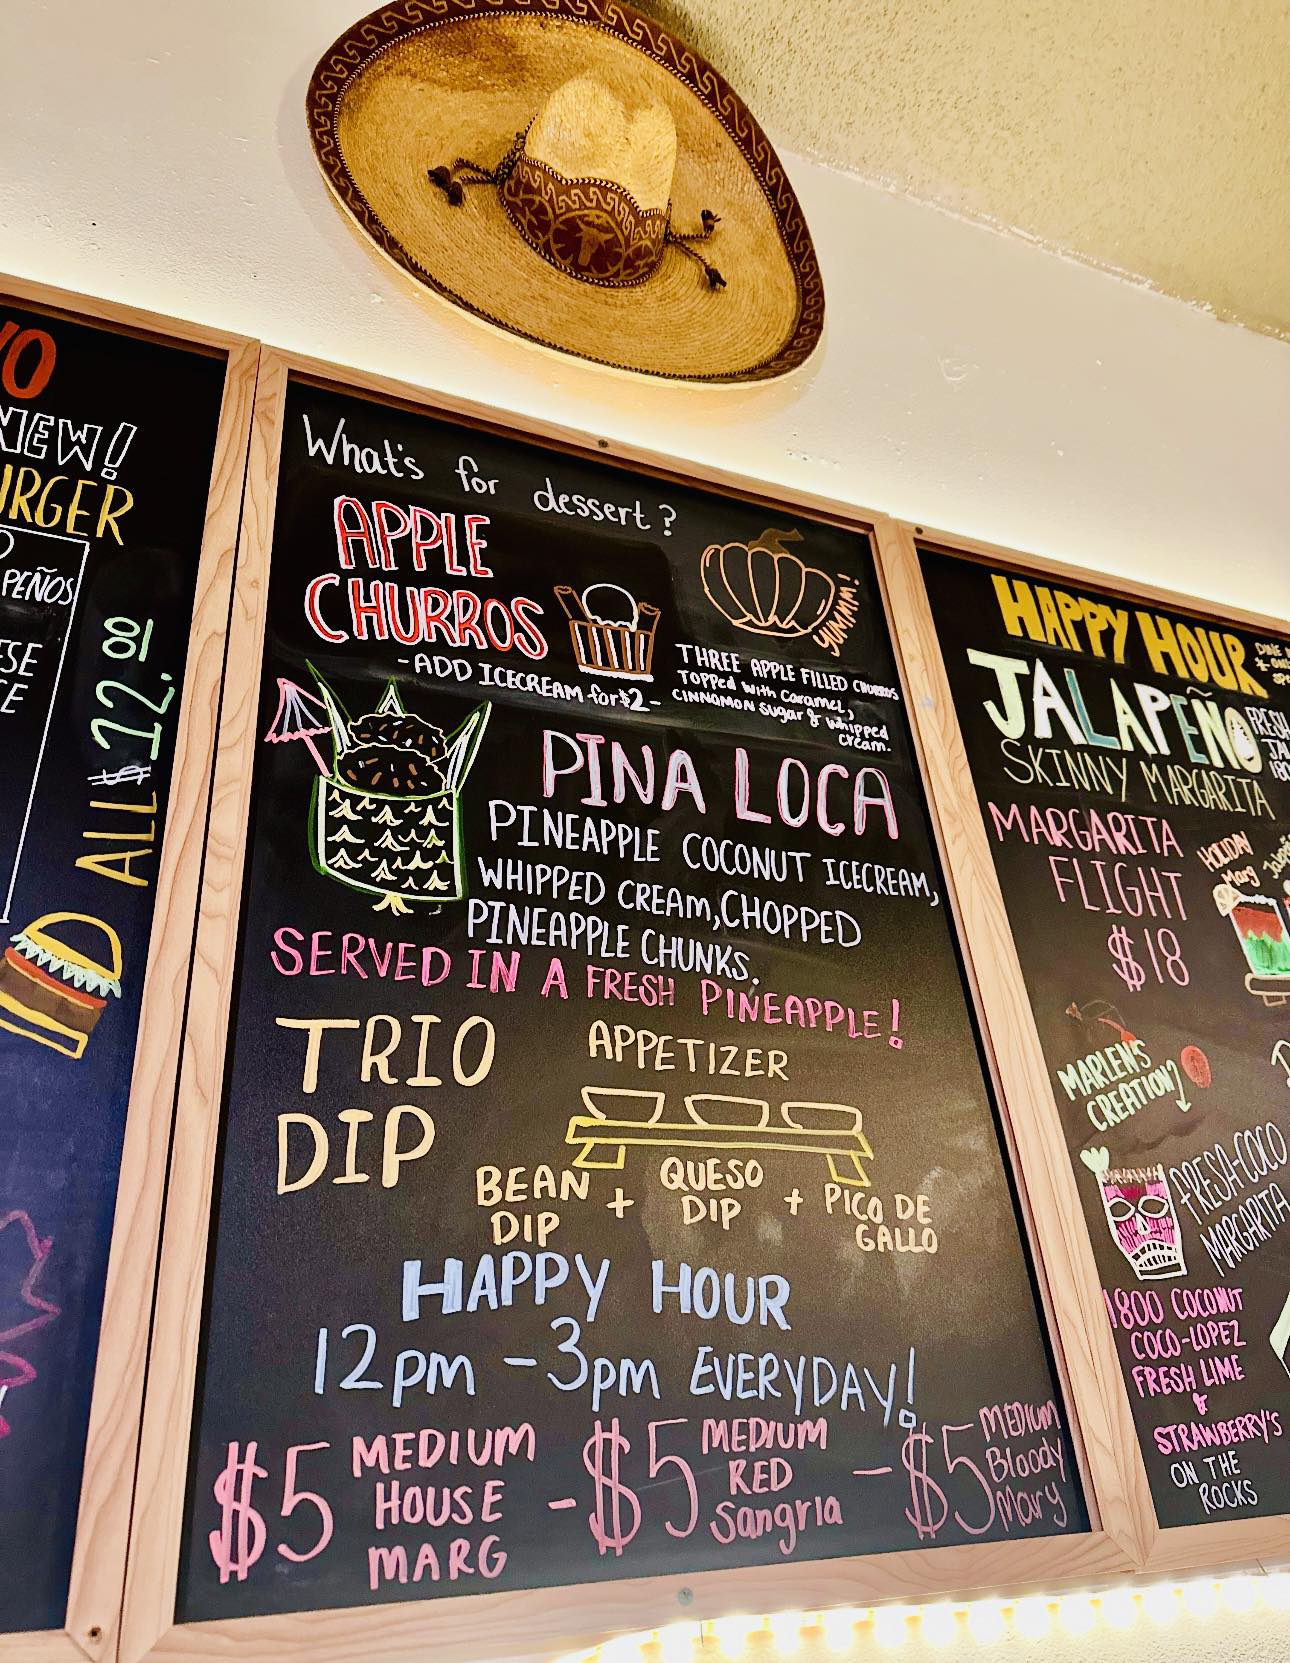 NEW!
PEÑOS
ALL $12.00
What's for dessert?
APPLE
CHURROS
-ADD ICECREAM for $2-
YUMM!
THREE APPLE FILLED CHURROS
TOPPED with caramel,
CINNAMON sugar & whipped
cream.
PINA LOCA
PINEAPPLE COCONUT ICECREAM,
WHIPPED CREAM, CHOPPED
PINEAPPLE CHUNKS.
SERVED IN A FRESH PINEAPPLE!
TRIO
DIP
APPETIZER
BEAN DIP + QUESO DIP + PICO DE GALLO
HAPPY HOUR
12pm - 3pm EVERYDAY!
$5 MEDIUM HOUSE MARG - $5 MEDIUM RED Sangria - $5 MEDIUM Bloody Mary
HAPPY HOUR
JALAPEÑO
SKINNY MARGARITA
MARGARITA
FLIGHT
$18
HOLIDAY
Marg
MARLEN'S
CREATION
FRESA-COCO
MARGARITA
1800 COCONUT
COCO-LOPEZ
FRESH LIME
&
STRAWBERRY'S
ON THE
ROCKS